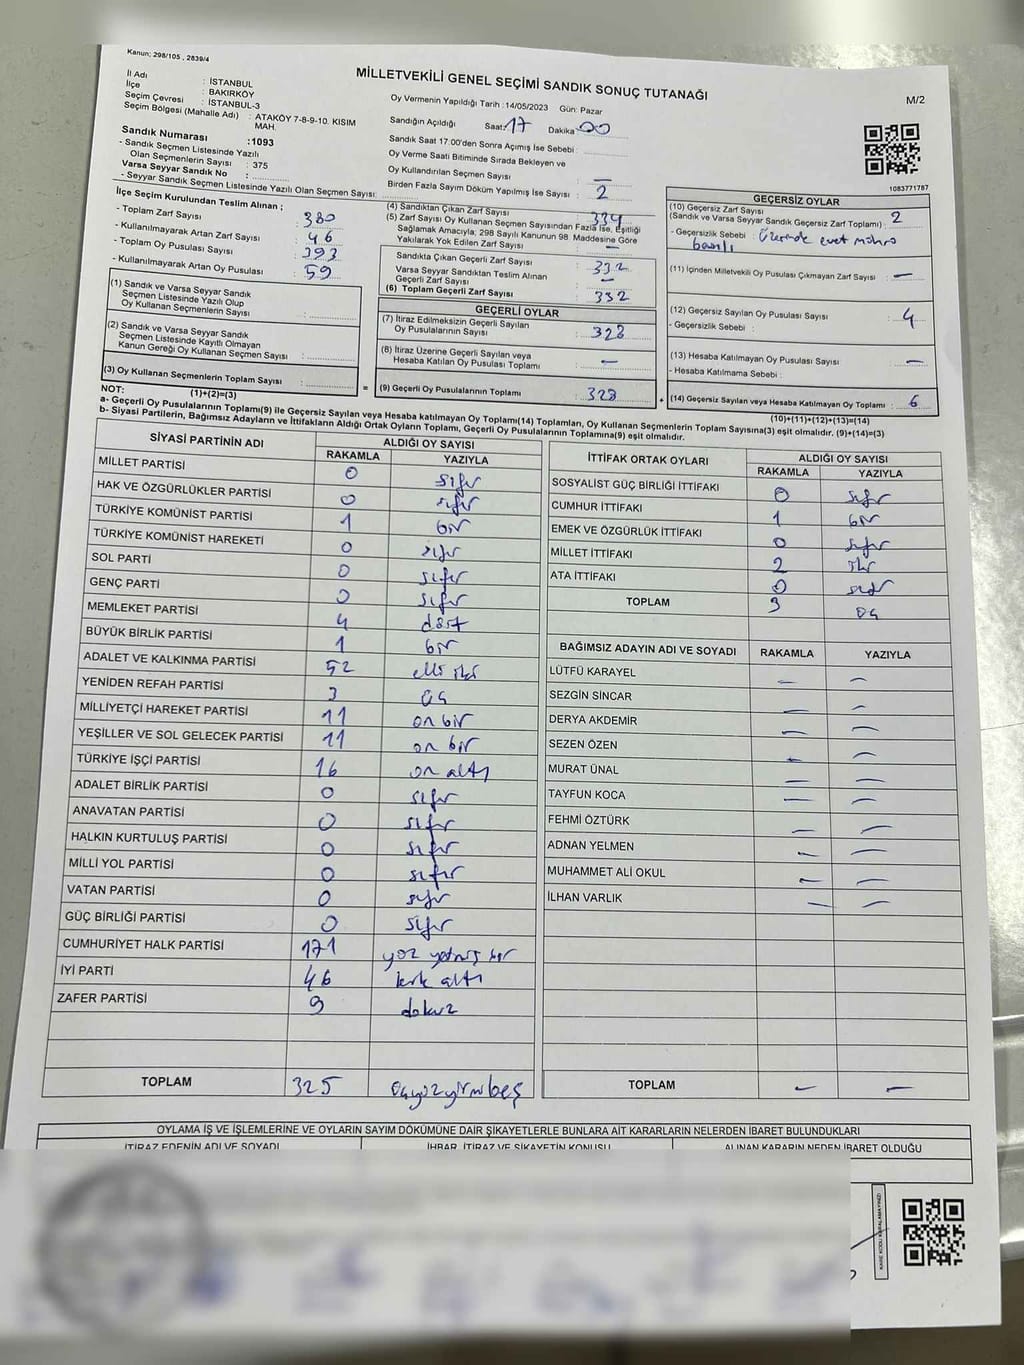 Kanun: 298/105, 2839/4
MİLLETVEKİLİ GENEL SEÇİMİ SANDIK SONUÇ TUTANAĞI
M/2
İl Adı : İSTANBUL
İlçe : BAKIRKÖY
Seçim Çevresi : İSTANBUL-3
Seçim Bölgesi (Mahalle Adı) : ATAKÖY 7-8-9-10. KISIM MAH.
Sandık Numarası : 1093
- Sandık Seçmen Listesinde Yazılı
Olan Seçmenlerin Sayısı : 375
Varsa Seyyar Sandık No :
- Seyyar Sandık Seçmen Listesinde Yazılı Olan Seçmen Sayısı:
Oy Vermenin Yapıldığı Tarih : 14/05/2023 Gün: Pazar
Sandığın Açıldığı Saat: 17 Dakika 00
Sandık Saat 17.00'den Sonra Açılmış İse Sebebi :
Oy Verme Saati Bitiminde Sırada Bekleyen ve
Oy Kullandırılan Seçmen Sayısı : —
Birden Fazla Sayım Döküm Yapılmış İse Sayısı : 2
1083771787
İlçe Seçim Kurulundan Teslim Alınan :
- Toplam Zarf Sayısı : 380
- Kullanılmayarak Artan Zarf Sayısı : 46
- Toplam Oy Pusulası Sayısı : 393
- Kullanılmayarak Artan Oy Pusulası : 59
(1) Sandık ve Varsa Seyyar Sandık
Seçmen Listesinde Yazılı Olup
Oy Kullanan Seçmenlerin Sayısı :
(2) Sandık ve Varsa Seyyar Sandık
Seçmen Listesinde Kayıtlı Olmayan
Kanun Gereği Oy Kullanan Seçmen Sayısı :
(3) Oy Kullanan Seçmenlerin Toplam Sayısı :
(1)+(2)=(3)
(4) Sandıktan Çıkan Zarf Sayısı : 334
(5) Zarf Sayısı Oy Kullanan Seçmen Sayısından Fazla İse, Eşitliği
Sağlamak Amacıyla; 298 Sayılı Kanunun 98. Maddesine Göre
Yakılarak Yok Edilen Zarf Sayısı : —
Sandıkta Çıkan Geçerli Zarf Sayısı : 332
Varsa Seyyar Sandıktan Teslim Alınan
Geçerli Zarf Sayısı : —
(6) Toplam Geçerli Zarf Sayısı : 332
GEÇERLİ OYLAR
(7) İtiraz Edilmeksizin Geçerli Sayılan
Oy Pusulalarının Sayısı : 328
(8) İtiraz Üzerine Geçerli Sayılan veya
Hesaba Katılan Oy Pusulası Toplamı : —
= (9) Geçerli Oy Pusulalarının Toplamı : 328
GEÇERSİZ OYLAR
(10) Geçersiz Zarf Sayısı
(Sandık ve Varsa Seyyar Sandık Geçersiz Zarf Toplamı) : 2
- Geçersizlik Sebebi : Üzerinde evet mührü
basılı
(11) İçinden Milletvekili Oy Pusulası Çıkmayan Zarf Sayısı : —
(12) Geçersiz Sayılan Oy Pusulası Sayısı : 4
- Geçersizlik Sebebi :
(13) Hesaba Katılmayan Oy Pusulası Sayısı : —
- Hesaba Katılmama Sebebi :
+ (14) Geçersiz Sayılan veya Hesaba Katılmayan Oy Toplamı : 6
(10)+(11)+(12)+(13)=(14)
NOT:
a- Geçerli Oy Pusulalarının Toplamı(9) ile Geçersiz Sayılan veya Hesaba katılmayan Oy Toplam(14) Toplamları, Oy Kullanan Seçmenlerin Toplam Sayısına(3) eşit olmalıdır. (9)+(14)=(3)
b- Siyasi Partilerin, Bağımsız Adayların ve İttifakların Aldığı Ortak Oyların Toplamı, Geçerli Oy Pusulalarının Toplamına(9) eşit olmalıdır.
SİYASİ PARTİNİN ADI ALDIĞI OY SAYISI
RAKAMLA YAZIYLA
MİLLET PARTİSİ 0 sıfır
HAK VE ÖZGÜRLÜKLER PARTİSİ 0 sıfır
TÜRKİYE KOMÜNİST PARTİSİ 1 bir
TÜRKİYE KOMÜNİST HAREKETİ 0 sıfır
SOL PARTİ 0 sıfır
GENÇ PARTİ 0 sıfır
MEMLEKET PARTİSİ 4 dört
BÜYÜK BİRLİK PARTİSİ 1 bir
ADALET VE KALKINMA PARTİSİ 52 elli iki
YENİDEN REFAH PARTİSİ 3 üç
MİLLİYETÇİ HAREKET PARTİSİ 11 on bir
YEŞİLLER VE SOL GELECEK PARTİSİ 11 on bir
TÜRKİYE İŞÇİ PARTİSİ 16 on altı
ADALET BİRLİK PARTİSİ 0 sıfır
ANAVATAN PARTİSİ 0 sıfır
HALKIN KURTULUŞ PARTİSİ 0 sıfır
MİLLİ YOL PARTİSİ 0 sıfır
VATAN PARTİSİ 0 sıfır
GÜÇ BİRLİĞİ PARTİSİ 0 sıfır
CUMHURİYET HALK PARTİSİ 171 yüz yetmiş bir
İYİ PARTİ 46 kırk altı
ZAFER PARTİSİ 9 dokuz
TOPLAM 325 üçyüzyirmibeş
İTTİFAK ORTAK OYLARI ALDIĞI OY SAYISI
RAKAMLA YAZIYLA
SOSYALİST GÜÇ BİRLİĞİ İTTİFAKI 0 sıfır
CUMHUR İTTİFAKI 1 bir
EMEK VE ÖZGÜRLÜK İTTİFAKI 0 sıfır
MİLLET İTTİFAKI 2 iki
ATA İTTİFAKI 0 sıfır
TOPLAM 3 üç
BAĞIMSIZ ADAYIN ADI VE SOYADI RAKAMLA YAZIYLA
LÜTFÜ KARAYEL — —
SEZGİN SİNCAR — —
DERYA AKDEMİR — —
SEZEN ÖZEN — —
MURAT ÜNAL — —
TAYFUN KOCA — —
FEHMİ ÖZTÜRK — —
ADNAN YELMEN — —
MUHAMMET ALİ OKUL — —
İLHAN VARLIK — —
TOPLAM — —
OYLAMA İŞ VE İŞLEMLERİNE VE OYLARIN SAYIM DÖKÜMÜNE DAİR ŞİKAYETLERLE BUNLARA AİT KARARLARIN NELERDEN İBARET BULUNDUKLARI
İTİRAZ EDENİN ADI VE SOYADI İHBAR, İTİRAZ VE ŞİKAYETİN KONUSU ALINAN KARARIN NEDEN İBARET OLDUĞU
KARE KODU KARALAMAYINIZ!